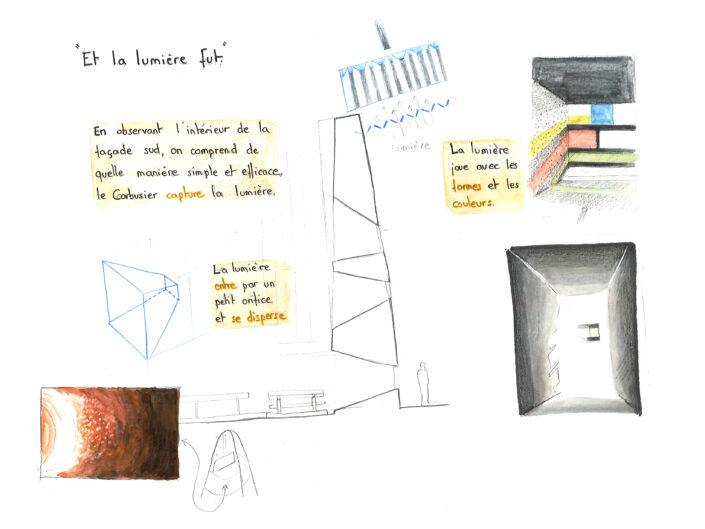 "Et la lumière fut."
En observant l'intérieur de la
façade sud, on comprend de
quelle manière simple et efficace,
le Corbusier capture la lumière.
Lumière
La lumière
joue avec les
formes et les
couleurs.
La lumière
entre par un
petit orifice
et se disperse